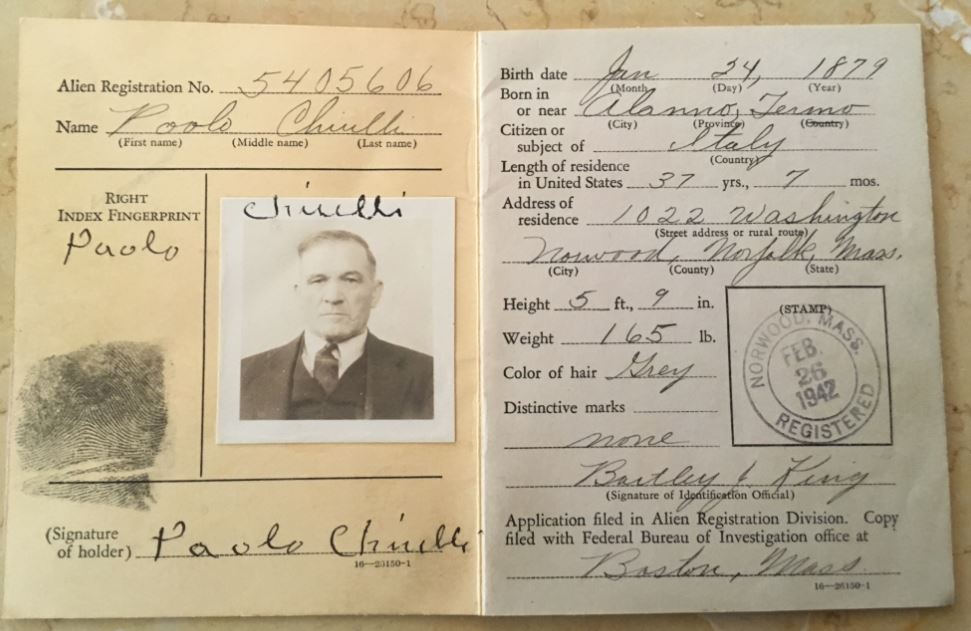 Alien Registration No. 5405606
Name Paolo Chiulli
(First name) (Middle name) (Last name)
RIGHT
INDEX FINGERPRINT
Paolo
Chiulli
(Signature
of holder) Paolo Chiulli
16—26150-1
Birth date Jan 24, 1879
(Month) (Day) (Year)
Born in
or near Alanno, Teramo
(City) (Province) (Country)
Citizen or
subject of Italy
(Country)
Length of residence
in United States 37 yrs., 7 mos.
Address of
residence 1022 Washington
(Street address or rural route)
Norwood, Norfolk, Mass.
(City) (County) (State)
Height 5 ft., 9 in.
Weight 165 lb.
Color of hair Grey
Distinctive marks
none
(STAMP)
NORWOOD, MASS.
FEB.
26
1942
REGISTERED
Bartley J. King
(Signature of Identification Official)
Application filed in Alien Registration Division. Copy
filed with Federal Bureau of Investigation office at
Boston, Mass
16—26150-1